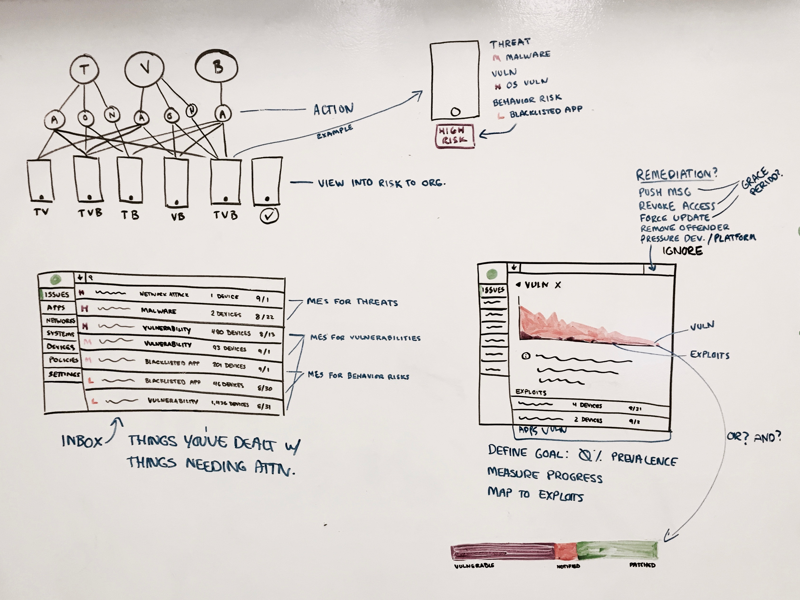 T V B
A O N A O N A
ACTION
EXAMPLE
VIEW INTO RISK TO ORG.
TV TVB TB VB TVB
THREAT
M MALWARE
VULN
H OS VULN
BEHAVIOR RISK
L BLACKLISTED APP
HIGH
RISK
REMEDIATION?
PUSH MSG
REVOKE ACCESS
FORCE UPDATE
REMOVE OFFENDER
PRESSURE DEV./PLATFORM
IGNORE
GRACE
PERIOD?
ISSUES
APPS
NETWORKS
SYSTEMS
DEVICES
POLICIES
SETTINGS
H NETWORK ATTACK 1 DEVICE 9/1
H MALWARE 2 DEVICES 8/22
H VULNERABILITY 400 DEVICES 8/13
M VULNERABILITY 93 DEVICES 9/1
M BLACKLISTED APP 201 DEVICES 9/1
L BLACKLISTED APP 116 DEVICES 8/30
L VULNERABILITY DEVICES 8/31
MES FOR THREATS
MES FOR VULNERABILITIES
MES FOR BEHAVIOR RISKS
INBOX
THINGS YOU'VE DEALT W/
THINGS NEEDING ATTN.
ISSUES
VULN X
VULN
EXPLOITS
EXPLOITS
4 DEVICES 8/21
2 DEVICES 9/2
APPS VULN
OR? AND?
DEFINE GOAL: 0% PREVALENCE
MEASURE PROGRESS
MAP TO EXPLOITS
VULNERABLE NOTIFIED PATCHED